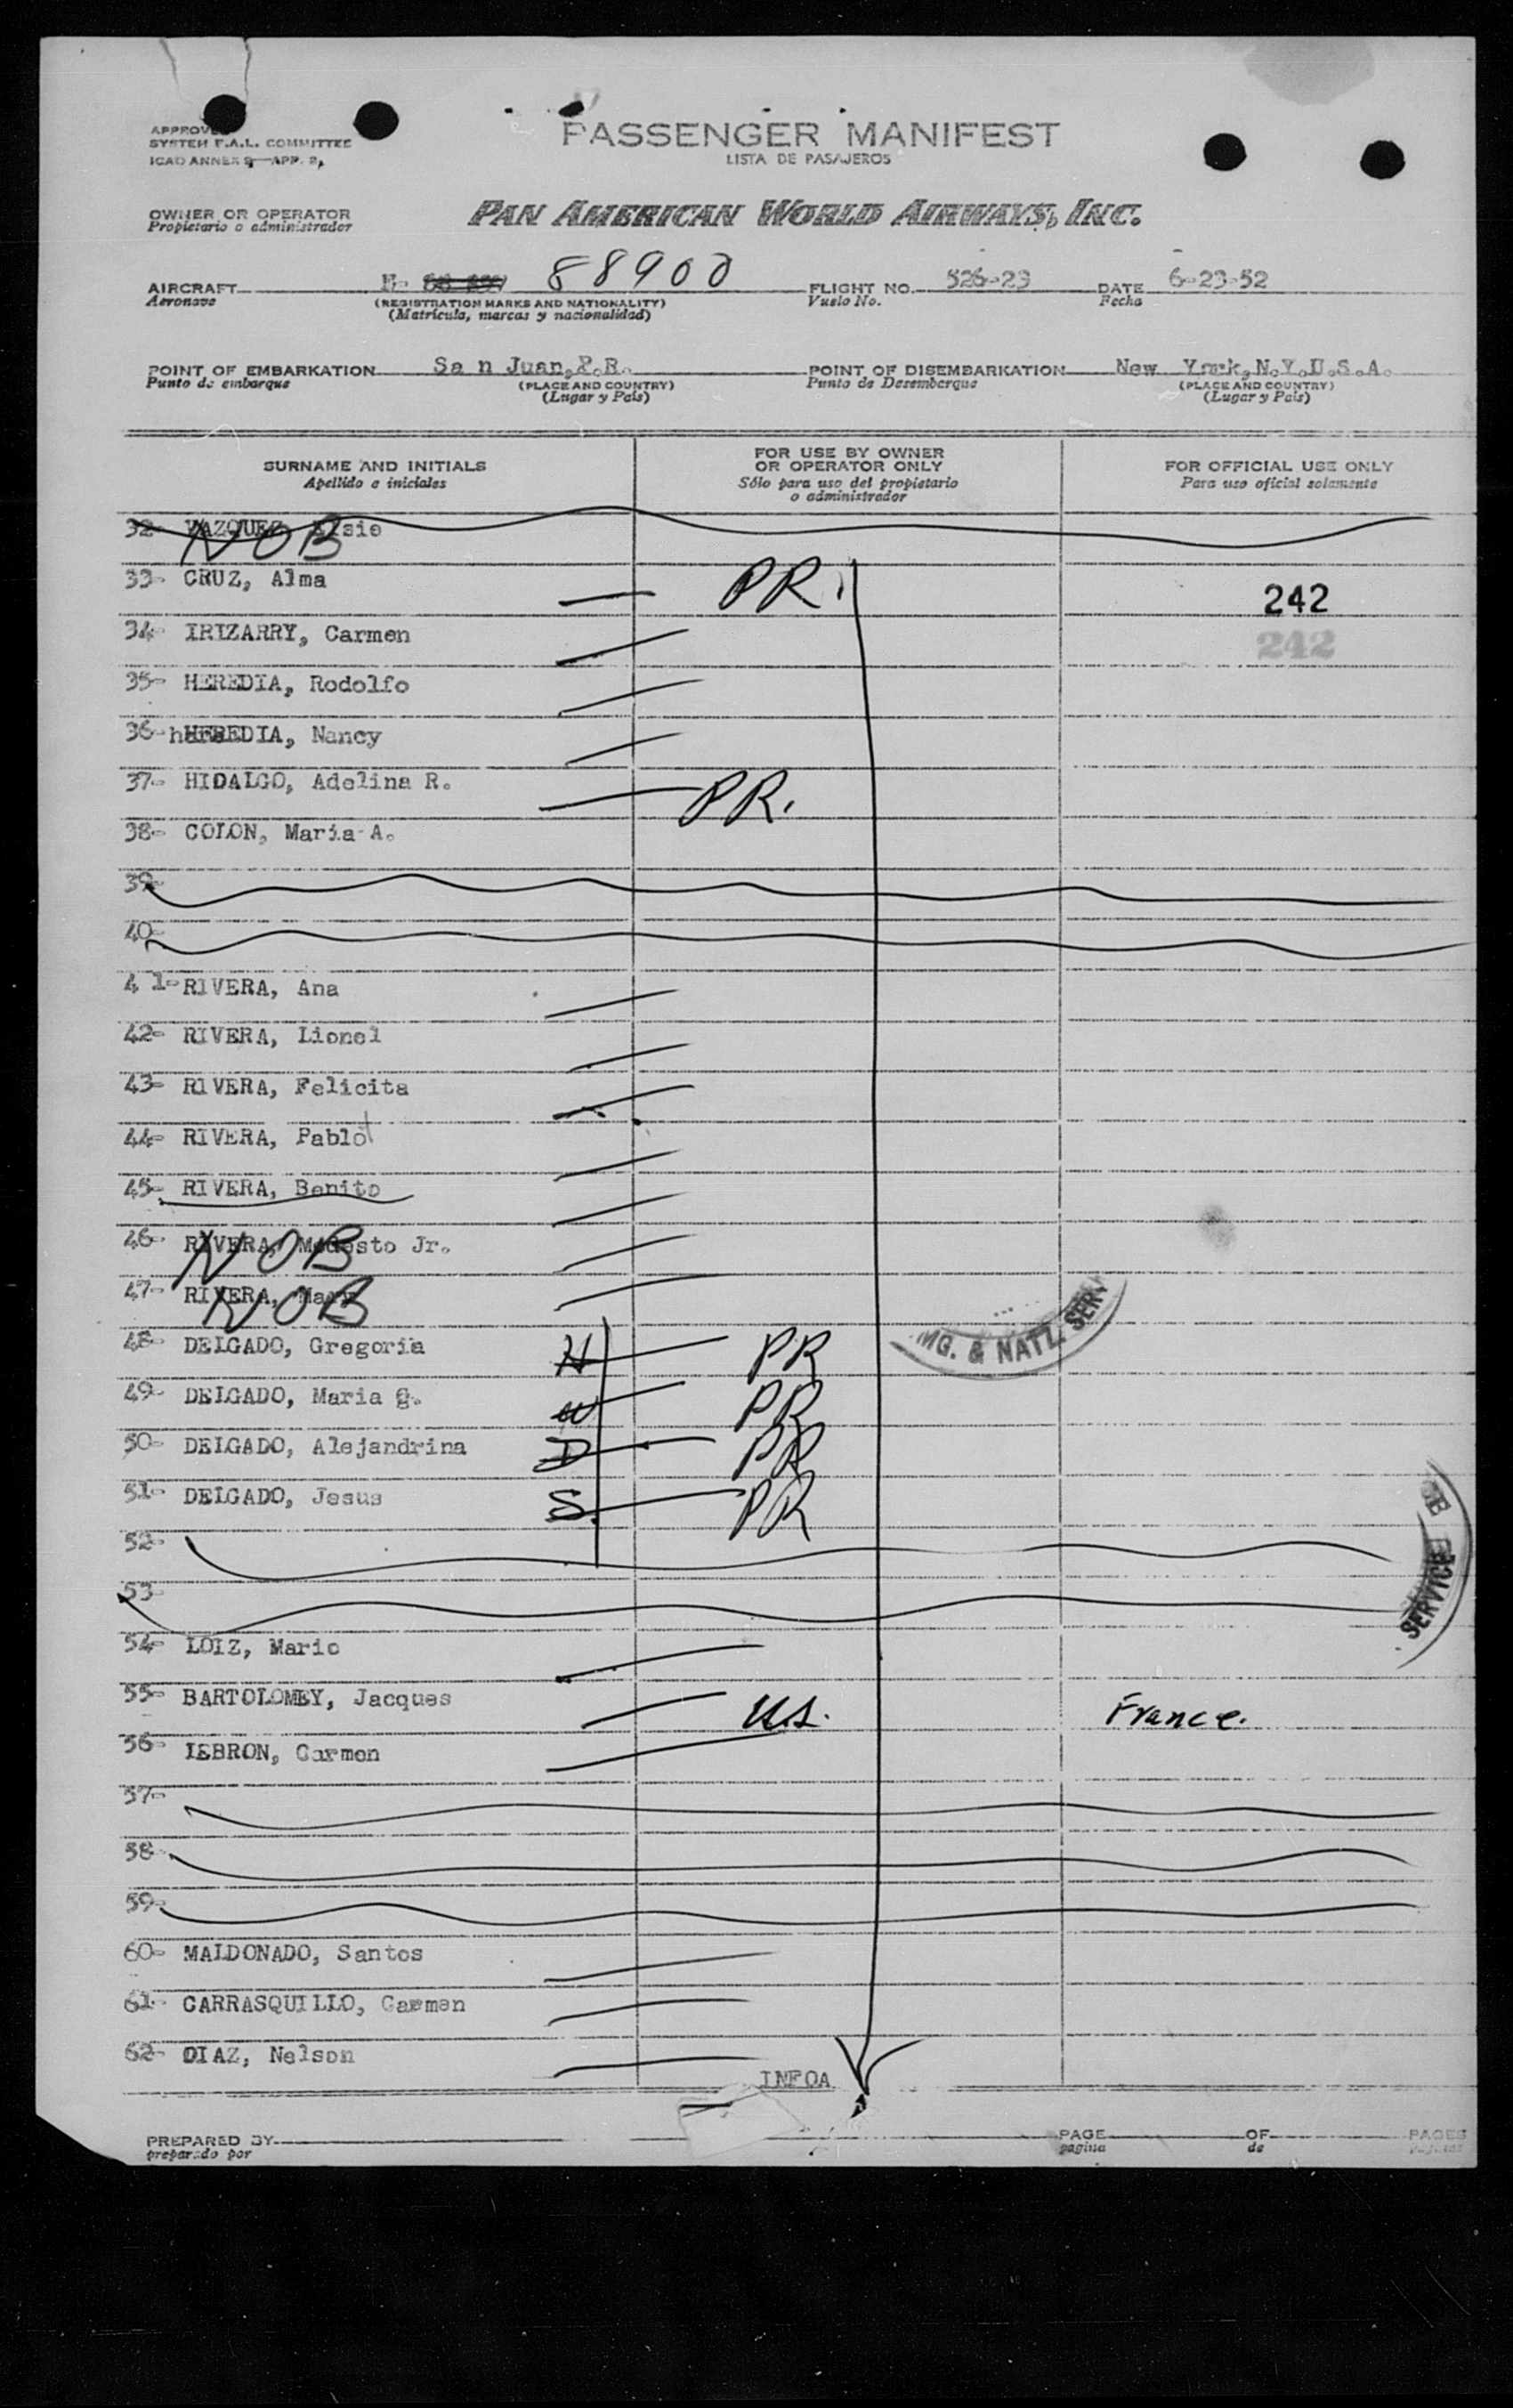 APPROVE
SYSTEM F.A.L. COMMITTEE
ICAO ANNEX 9—APP. 2,
PASSENGER MANIFEST
LISTA DE PASAJEROS
OWNER OR OPERATOR
Propietario o administrador
PAN AMERICAN WORLD AIRWAYS, INC.
AIRCRAFT N- 88900 FLIGHT NO. 526-23 DATE 6-23-52
Aeronave (REGISTRATION MARKS AND NATIONALITY) Vuelo No. Fecha
(Matrícula, marcas y nacionalidad)
POINT OF EMBARKATION Sa n Juan,P.R. POINT OF DISEMBARKATION New York,N.Y.U.S.A.
Punto de embarque (PLACE AND COUNTRY) Punto de Desembarque (PLACE AND COUNTRY)
(Lugar y País) (Lugar y País)
SURNAME AND INITIALS FOR USE BY OWNER OR OPERATOR ONLY FOR OFFICIAL USE ONLY
Apellido e iniciales Sólo para uso del propietario o administrador Para uso oficial solamente
32- VAZQUEZ, Elsie NOB
33- CRUZ, Alma PR. 242
34- IRIZARRY, Carmen 242
35- HEREDIA, Rodolfo
36- HEREDIA, Nancy
37- HIDALGO, Adelina R. PR.
38- COLON, Maria A.
39-
40-
4 1- RIVERA, Ana
42- RIVERA, Lionel
43- RIVERA, Felicita
44- RIVERA, Pablo
45- RIVERA, Benito
46- RIVERA, Modesto Jr. NOB
47- RIVERA, NOB
48- DELGADO, Gregoria H PR
49- DELGADO, Maria G. W PR
50- DELGADO, Alejandrina D PR
51- DELGADO, Jesus S. PR
MG. & NATZ. SERV
52-
53-
SERVICE
54- LOIZ, Mario
55- BARTOLOMEY, Jacques U.S. France.
56- LEBRON, Carmen
57-
58-
59-
60- MALDONADO, Santos
61- CARRASQUILLO, Carmen
62- DIAZ, Nelson
INFOA
PREPARED BY PAGE OF PAGES
preparado por pagina de